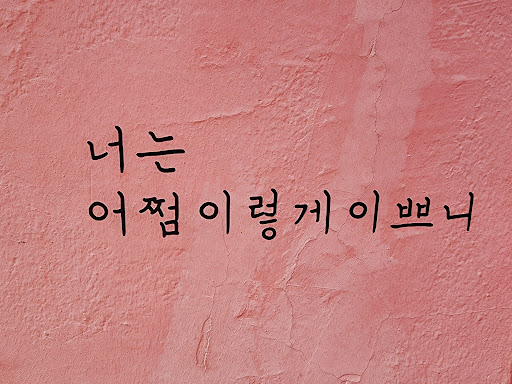 너는
어쩜 이렇게 이쁘니